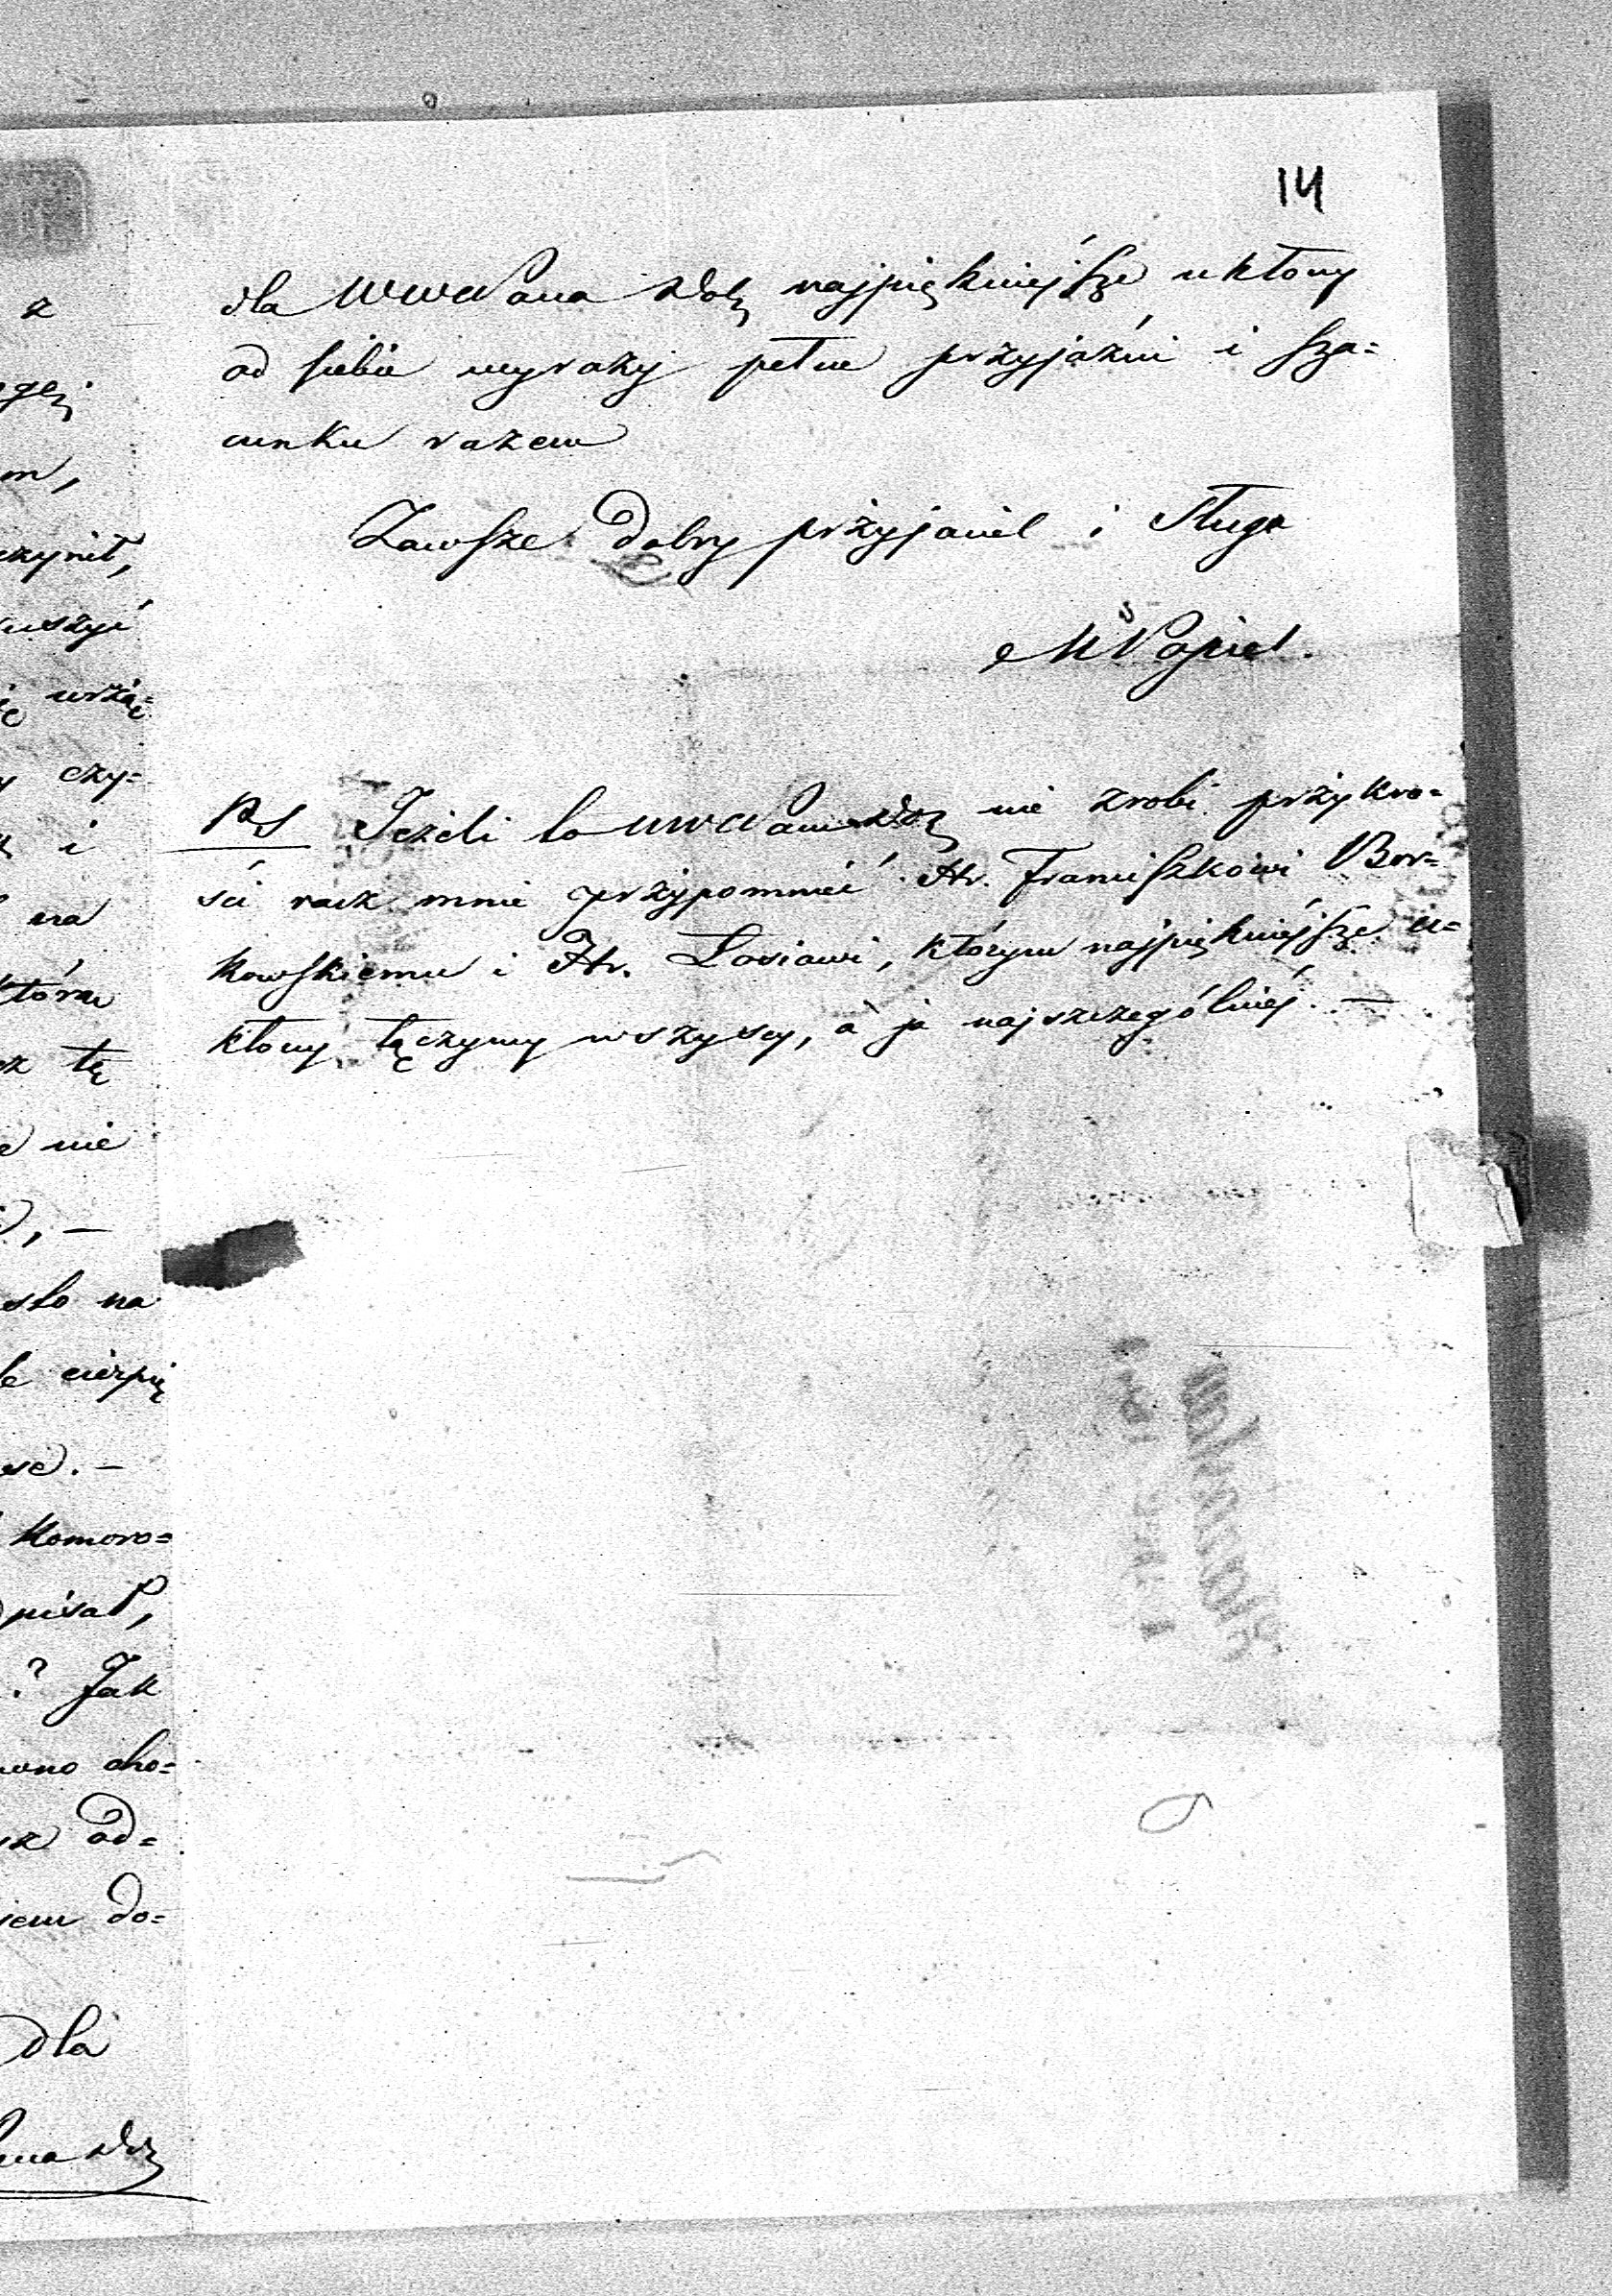 14
dla WWPana Dobr najpiękniejsze ukłony
od siebie wyrazy pełne przyjaźni i sza=
cunku razem
Zawsze dobry przyjaciel i sługa
Popiel.
PS Jeżeli to WWPanu Dob nie zrobi przykro=
ści racz mnie przypomnieć Hr. Franciszkowi Bor=
kowskiemu i Hr. Łosiowi, którym najpiękniejsze u=
kłony łączymy wszyscy, a ja najszczególniéj. —
z
m,
czynił,
czy=
i
na
która
tę
nie
na
cierpię
Komoro=
pisał,
? Jak
cho=
od=
do=
dla